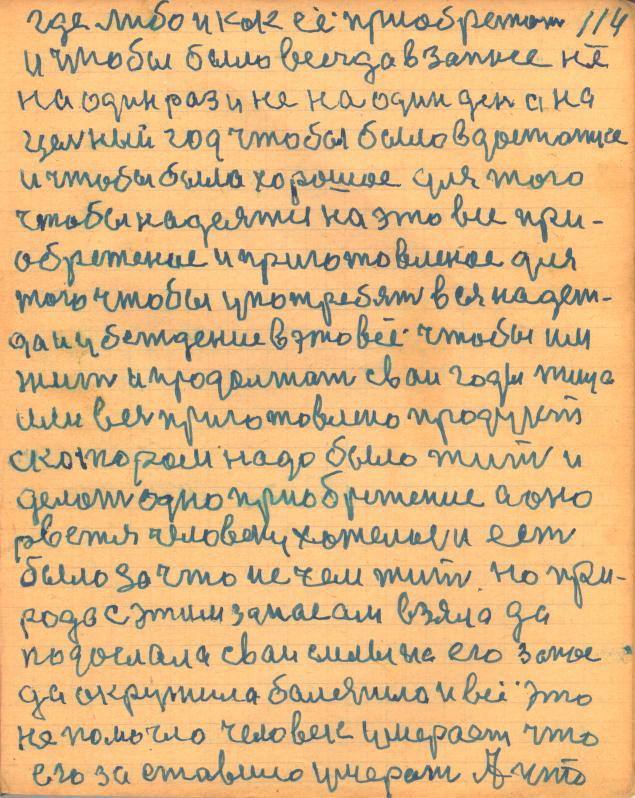 где либо и как её приобретат 114
и чтобы было всегда в запасе не
на один раз и не на один ден а на
целный год чтобы было в достатке
и чтобы было хорошое для того
чтобы надеятся на это все при-
обретеное и приготовленое для
того чтобы употреблят вся надеж-
да и убеждение в это всё чтобы им
жит и продолжат сваи годы тица
или вся приготовлено продукт
скотором надо было жит и
делат одно приобретение а оно
рвется человеку хотелос и ест
было за что и чем жит но при-
рода с этим запасам взяла да
подослала сваи силы на его запас
да окружила балячкю и всё это
не помогло человек умерает что
его заставило умерат А что